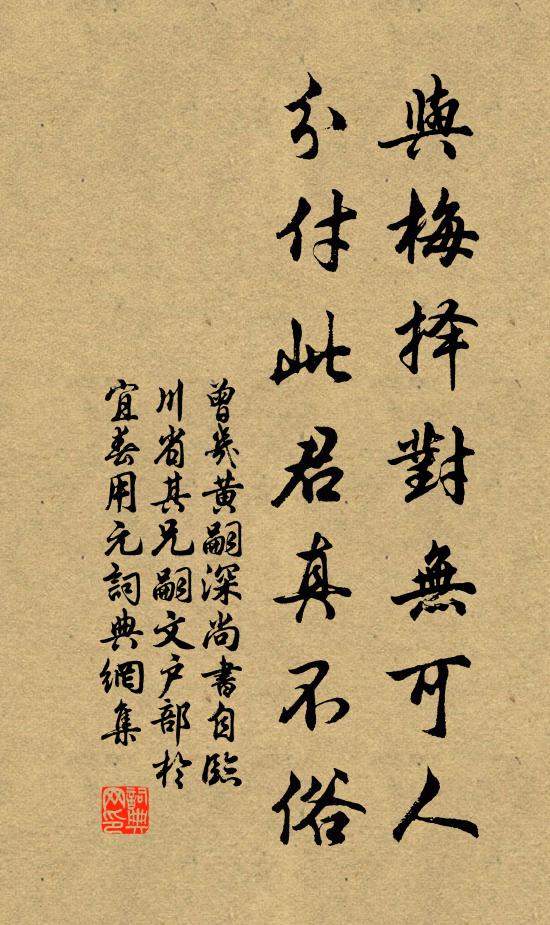 與梅择對無可人
分付此君真不俗
曾幾黄嗣深尚書自臨
川省其兄嗣文户部於
宜春用元詞典網集
詞典網印